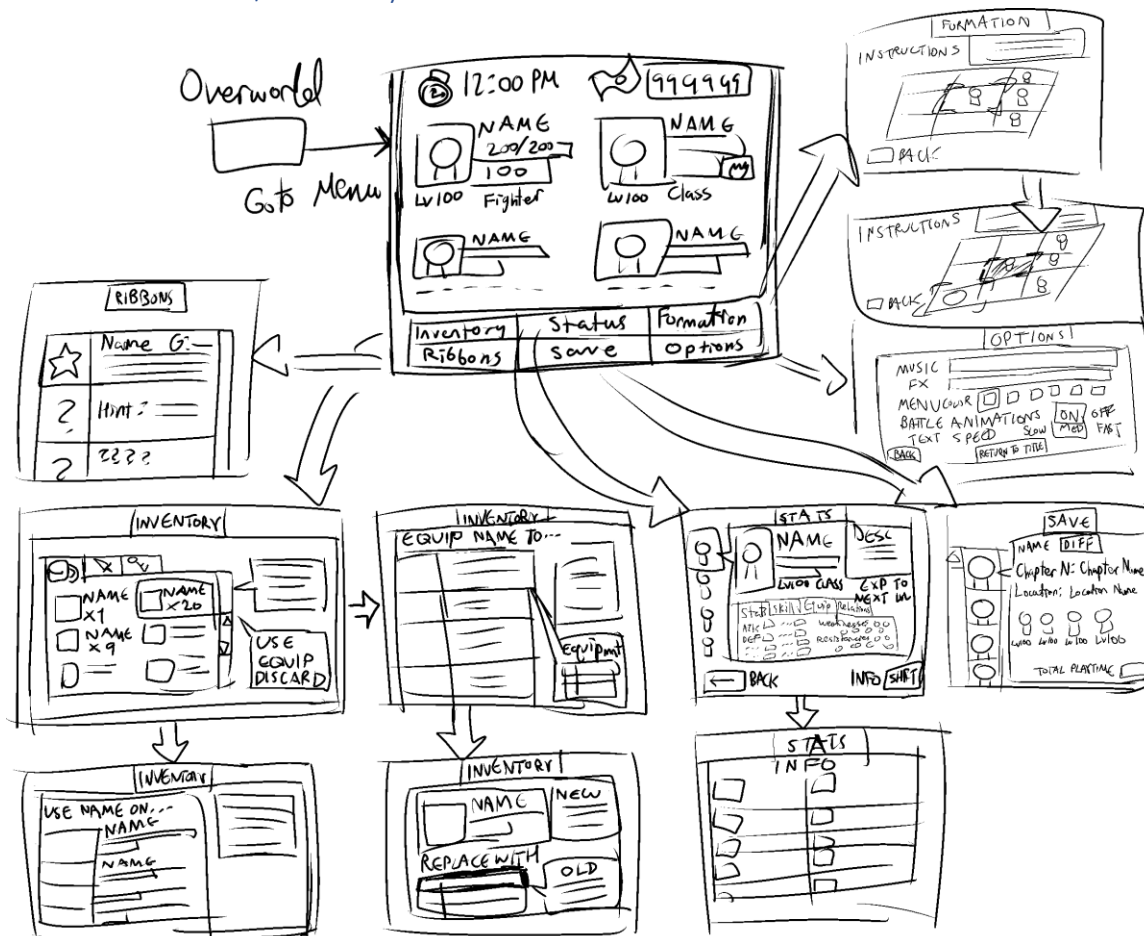 Overworld
Goto Menu
12:00 PM
999999
NAME
200/200
100
Lv100 Fighter
NAME
Lv100 Class
NAME
NAME
Inventory Status Formation
Ribbons Save Options
FORMATION
INSTRUCTIONS
BACK
INSTRUCTIONS
BACK
OPTIONS
MUSIC
FX
MENU COLOR
BATTLE ANIMATIONS ON OFF
TEXT SPEED SLOW MED FAST
BACK
RETURN TO TITLE
RIBBONS
Name G:
? Hint:
? ????
INVENTORY
NAME
x1
NAME
x20
NAME
x9
USE
EQUIP
DISCARD
INVENTORY
EQUIP NAME TO...
Equipment
STATS
NAME
DESC
LV100 CLASS
EXP TO
NEXT LVL
Stats Skill Equip Relations
ATK
DEF
Weaknesses
Resistances
BACK
INFO SHIFT
SAVE
NAME DIFF
Chapter N: Chapter Name
Location: Location Name
Lv100 Lv100 Lv100 Lv100
TOTAL PLAYTIME
INVENTORY
USE NAME ON...
NAME
NAME
INVENTORY
NAME
NEW
REPLACE WITH
OLD
STATS
INFO